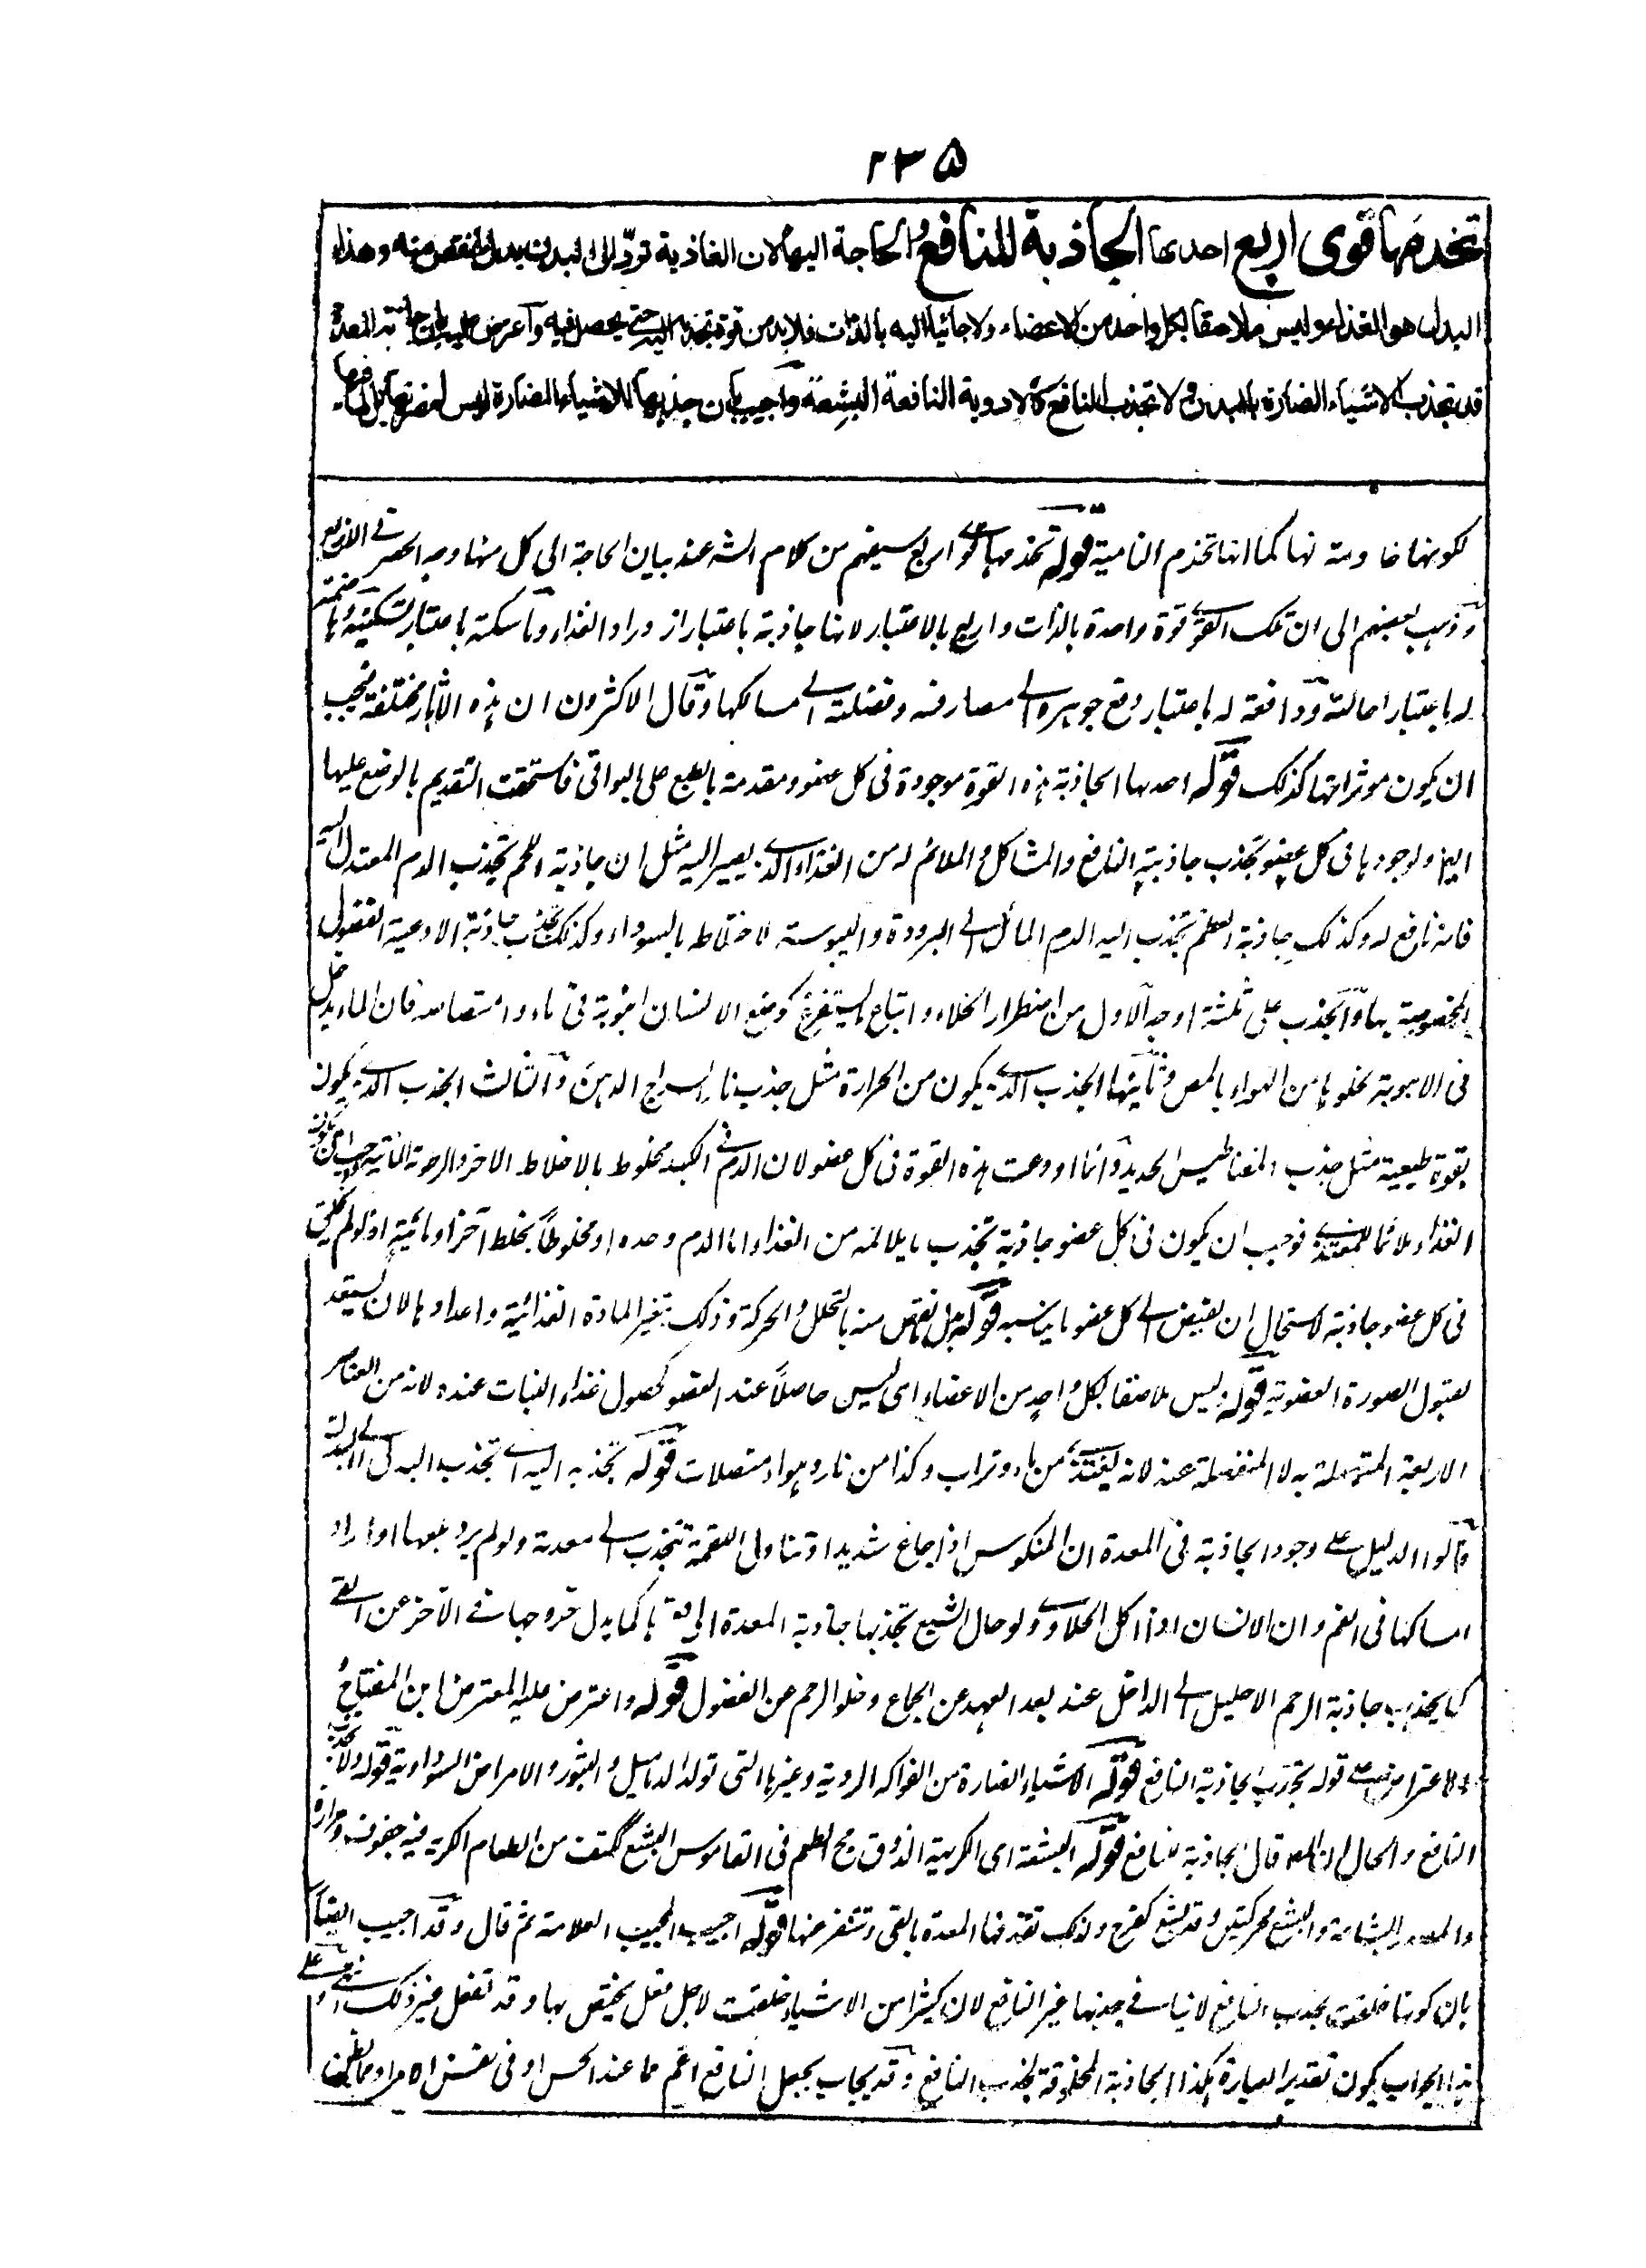 ٢٣٥
تخدمها قوى اربع احدىها الجاذبة للنافع والحاجة اليها لان الغاذية تورد الى البدن بدل ما نقص منه وهذا
البدل هو الغذاء وليس ملاصقا لكل واحد من الاعضاء ولا جائيا اليه بالذات فلابد من قوة تجذبه اليه حتى يحصل فيه واعرض عليه بان جاذبة المعدة
قد تجذب الاشياء الضارة بالبدن ولا تجذب النافع كالادوية النافعة البشعة واجيب بان جذبها للاشياء الضارة ليس لمضرتها بل لنا فيها
لكونها خادمة لها كما انها تخدم النامية قوله تخدمها قوى اربع سيفهم من كلام الشه عند بيان الحاجة الى كل منها وجه الحصر فى الاربع
وذهب بعضهم الى ان تلك القوى قوة واحدة بالذات واربع بالاعتبار لانها جاذبة باعتبار ازدراد الغذاء وماسكة باعتبار تسكينه وهاضمة
له باعتبار احالته ودافعة له باعتبار دفع جوهره الى مصارفه وفضلته الى مسالكها وقال الاكثرون ان هذه الاثار مختلفة فيجب
ان يكون موثراتها كذلك قوله احدىها الجاذبة هذه القوة موجودة فى كل عضو ومقدمة بالطبع على البواقى فاستحقت التقديم بالوضع عليها
ايضا ولوجودها فى كل عضو تجذب جاذبية النافع والمشاكل والملائم له من الغذاء الذى يصير اليه مثل ان جاذبة اللحم تجذب الدم المعتدل اليه
فانه نافع له وكذلك جاذبة العظم تجذب اليه الدم المائل الى البرودة واليبوسة لاختلاطه بالسوداء وكذلك تجذب جاذبة الاوعية الفضول
المخصوصة بها والجذب على ثلثة اوجه الاول من اضطرار الخلاء واتباع ما يستفرغ كوضع الانسان انبوبة فى ماء وامتصاصه فان الماء يدخل
فى الانبوبة لخلوها من الهواء بالمص وثانيها الجذب الذى يكون من الحرارة مثل جذب نار السراج الدهن والثالث الجذب الذى يكون
بقوة طبيعية مثل جذب المغناطيس الحديد وانما اودعت هذه القوة فى كل عضو لان الدم فى الكبد مخلوط بالاخلاط الاخر والرطوبة المائية
الغذاء ملائما للمغتذى فوجب ان يكون فى كل عضو جاذبة تجذب ما يلائمه من الغذاء اما الدم وحده او مخلوطا بخلط آخر او مائية اذ لو لم يخلق
فى كل عضو جاذبة لاستحال ان يفيض الى كل عضو ما يناسبه قوله بدل ما نقص منه بالتحلل والحركة وذلك بتغير المادة الغذائية واعدادها لان يستعد
لقبول الصورة العضوية قوله ليس ملاصقا لكل واحد من الاعضاء اى ليس حاصلا عند العضو كحصول غذاء النبات عنده لانه من العناصر
الاربعة المتصلة به لا المنفصلة عنه لانه يغتذى من ماء وتراب وكذا من نار وهواء متصلات قوله تجذبه اليه اى تجذب البدل الى
قالوا الدليل على وجود الجاذبة فى المعدة ان المنكوس اذا جاع شديدا وتناول اللقمة تنجذب الى معدته ولو لم يرد بلعها او اراد
امساكها فى الفم وان الانسان اذا اكل الحلاوى ولو حال الشبع تجذبها جاذبة المعدة الى قعرها كما يدل خروجها فى الآخر عن القى
كما يجذب جاذبة الرحم الاحليل الى الداخل عند بعد العهد عن الجماع وخلو الرحم عن الفضول قوله واعترض عليه المعترض ابن المفتاح
الاعتراض على قوله تجذب الجاذبة النافع قوله الاشياء الضارة من الفواكه الردية وغيرها التى تولد الدماميل والبثور والامراض السوداوية قوله ولا تجذب
النافع والحال ان المصه قال الجاذبة للنافع قوله البشعة اى الكريهة الذوق مج الطعم فى القاموس البشع ككتف من الطعام الكريه فيه جفوف ومرارة
والمصدر البشاعة والبشع محركتين وقد بشع كفرح وذلك تقذفها المعدة بالقى وتتنفر عنها قوله اجيب المجيب العلامة ثم قال وقد اجيب ايضا
بان كونها خلقت لجذب النافع لا ينافى جذبها غير النافع لان كثيرا من الاشياء خلقت لاجل فعل يختص بها وقد تفعل غير ذلك
هذا الجواب يكون تقدير العبارة هكذا الجاذبة المخلوقة لجذب النافع وقد يجاب بجعل النافع اعم مما عند الحس او فى نفس الامر او مما يظن